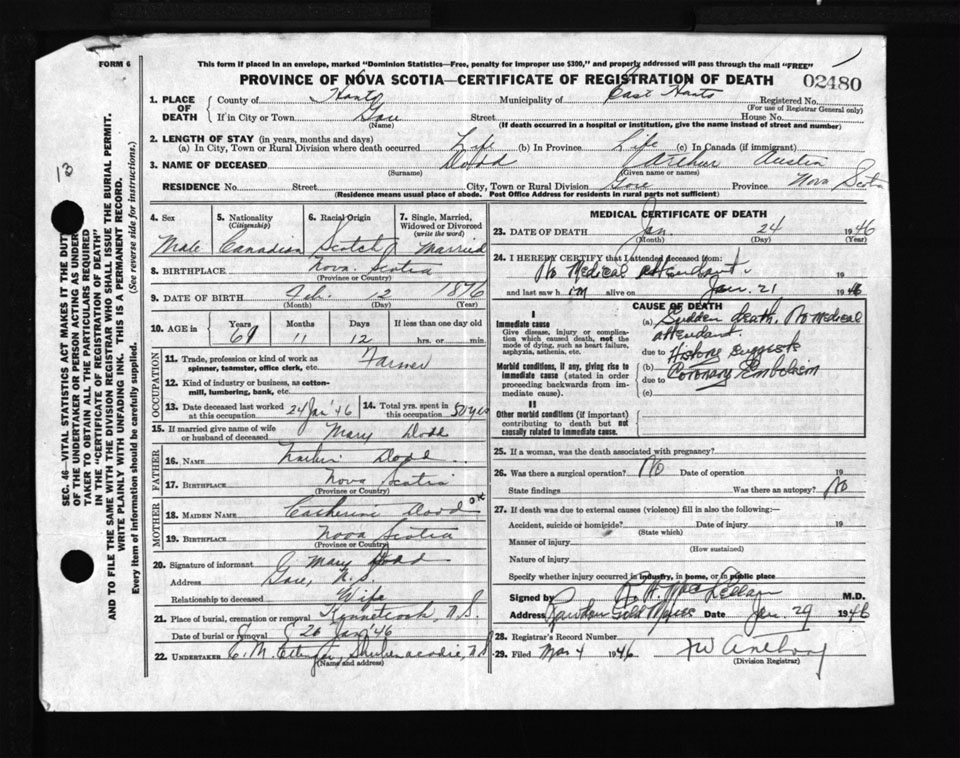 FORM 6
This form if placed in an envelope, marked "Dominion Statistics—Free, penalty for improper use $300," and properly addressed will pass through the mail "FREE"
PROVINCE OF NOVA SCOTIA—CERTIFICATE OF REGISTRATION OF DEATH
02480
1. PLACE OF DEATH County of Hants Municipality of East Hants Registered No.
(For use of Registrar General only)
If in City or Town Gore Street House No.
(Name) (If death occurred in a hospital or institution, give the name instead of street and number)
2. LENGTH OF STAY (in years, months and days)
(a) In City, Town or Rural Division where death occurred Life (b) In Province Life (c) In Canada (if immigrant)
3. NAME OF DECEASED Dodd Arthur Austin
(Surname) (Given name or names)
RESIDENCE No. Street City, Town or Rural Division Gore Province Nova Scotia
(Residence means usual place of abode. Post Office Address for residents in rural parts not sufficient)
4. Sex Male
5. Nationality (Citizenship) Canadian
6. Racial Origin Scotch
7. Single, Married, Widowed or Divorced (write the word) Married
8. BIRTHPLACE Nova Scotia
(Province or Country)
9. DATE OF BIRTH Feb. 12 1876
(Month) (Day) (Year)
10. AGE in Years Months Days If less than one day old
69 11 12 hrs. or min.
OCCUPATION
11. Trade, profession or kind of work as spinner, teamster, office clerk, etc. Farmer
12. Kind of industry or business, as cotton-mill, lumbering, bank, etc.
13. Date deceased last worked at this occupation 24 Jan '46
14. Total yrs. spent in this occupation 50 yrs
15. If married give name of wife or husband of deceased Mary Dodd
FATHER
16. NAME Dodd
17. BIRTHPLACE Nova Scotia
(Province or Country)
MOTHER
18. MAIDEN NAME Catherine Dodd OK
19. BIRTHPLACE Nova Scotia
(Province or Country)
20. Signature of informant Mary Dodd
Address Gore, N.S.
Relationship to deceased Wife
21. Place of burial, cremation or removal Kennetcook, N.S.
Date of burial or removal 26 Jan '46
22. UNDERTAKER C. M. Ettinger, Shubenacadie, N.S.
(Name and address)
MEDICAL CERTIFICATE OF DEATH
23. DATE OF DEATH Jan. 24 1946
(Month) (Day) (Year)
24. I HEREBY CERTIFY that I attended deceased from:
No Medical Attendant. 19
and last saw him alive on Jan. 21 1946
CAUSE OF DEATH
I
Immediate cause
Give disease, injury or complication which caused death, not the mode of dying, such as heart failure, asphyxia, asthenia, etc.
Morbid conditions, if any, giving rise to immediate cause (stated in order proceeding backwards from immediate cause).
II
Other morbid conditions (if important) contributing to death but not causally related to immediate cause.
(a) Sudden death. No medical
attendant.
due to History suggests
(b) Coronary Embolism
due to
(c)
25. If a woman, was the death associated with pregnancy?
26. Was there a surgical operation? No Date of operation 19
State findings Was there an autopsy? No
27. If death was due to external causes (violence) fill in also the following:—
Accident, suicide or homicide? Date of injury 19
(State which)
Manner of injury
(How sustained)
Nature of injury
Specify whether injury occurred in industry, in home, or in public place
Signed by R. H. MacLellan M.D.
Address Rawdon Gold Mines Date Jan. 29 1946
28. Registrar's Record Number
29. Filed Mar 4 1946
(Division Registrar)
13
SEC. 46—VITAL STATISTICS ACT MAKES IT THE DUTY
OF THE UNDERTAKER OR PERSON ACTING AS UNDER-
TAKER TO OBTAIN ALL THE PARTICULARS REQUIRED
IN THE "CERTIFICATE OF REGISTRATION OF DEATH"
AND TO FILE THE SAME WITH THE DIVISION REGISTRAR WHO SHALL ISSUE THE BURIAL PERMIT.
WRITE PLAINLY WITH UNFADING INK. THIS IS A PERMANENT RECORD.
Every item of information should be carefully supplied. (See reverse side for instructions.)